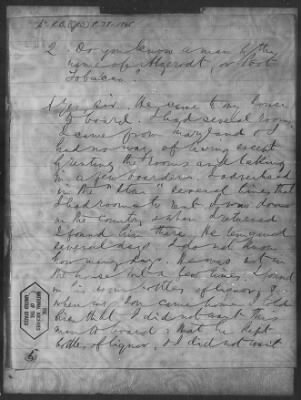 2. Do you know a man by the
name of Atzerodt, or Port
Tobacco?
A Yes sir. He came to my house
to board. I had several rooms,
I came from Maryland & I
had no way of living except
by renting the rooms and taking
in a few boarders. I advertised
in the "Star" several times that
I had rooms to rent. I was down
in the country & when I returned
I found him there. He remained
several days. I do not know
how many days. He was not in
the house but a few times. I found
in his room bottles of liquor, &
when my son came home I told
him that I did not want this
man to board & that he kept
bottles of liquor, & I did not want
THE
NATIONAL ARCHIVES
OF THE
UNITED STATES